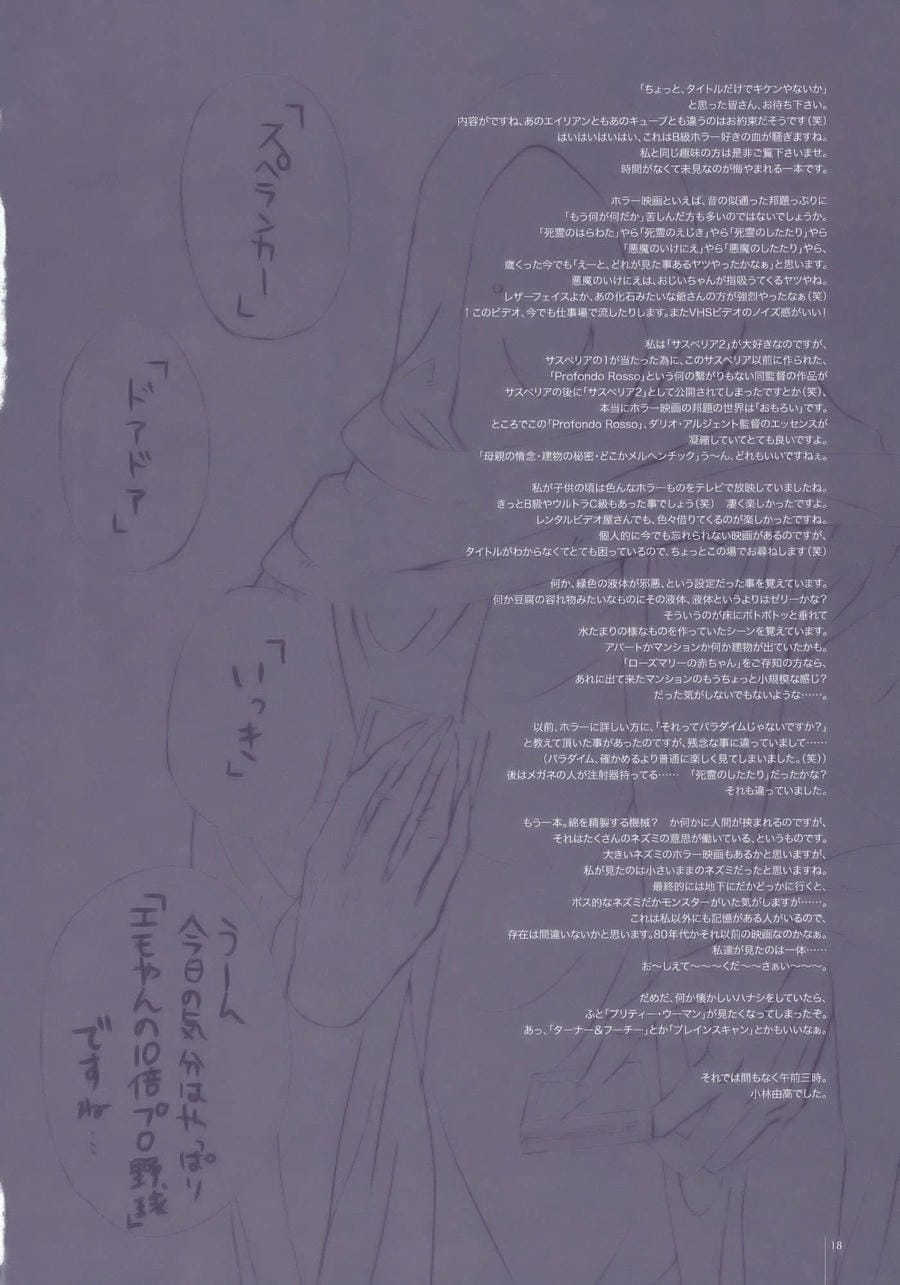 「ちょっと、タイトルだけでキケンやないか」
と思った皆さん、お待ち下さい。
内容がですね、あのエイリアンともあのキューブとも違うのはお約束だそうです(笑)
はいはいはいはい、これはB級ホラー好きの血が騒ぎますね。
私と同じ趣味の方は是非ご覧下さいませ。
時間がなくて未見なのが悔やまれる一本です。
ホラー映画といえば、昔の似通った邦題っぷりに
「もう何が何だか」苦しんだ方も多いのではないでしょうか。
「死霊のはらわた」やら「死霊のえじき」やら「死霊のしたたり」やら
「悪魔のいけにえ」やら「悪魔のしたたり」やら、
歳くった今でも「えーと、どれが見た事あるヤツやったかなぁ」と思います。
悪魔のいけにえは、おじいちゃんが指吸うてくるヤツやね。
レザーフェイスよか、あの化石みたいな爺さんの方が強烈やったなぁ(笑)
↑このビデオ、今でも仕事場で流したりします。またVHSビデオのノイズ感がいい!
私は「サスペリア2」が大好きなのですが、
サスペリアの1が当たった為に、このサスペリア以前に作られた、
「Profondo Rosso」という何の繋がりもない同監督の作品が
サスペリアの後に「サスペリア2」として公開されてしまったですとか(笑)、
本当にホラー映画の邦題の世界は「おもろい」です。
ところでこの「Profondo Rosso」、ダリオ・アルジェント監督のエッセンスが
凝縮していてとても良いですよ。
「母親の情念・建物の秘密・どこかメルヘンチック」う〜ん、どれもいいですねぇ。
私が子供の頃は色んなホラーものをテレビで放映していましたね。
きっとB級やウルトラC級もあった事でしょう(笑)　凄く楽しかったですよ。
レンタルビデオ屋さんでも、色々借りてくるのが楽しかったですね。
個人的に今でも忘れられない映画があるのですが、
タイトルがわからなくてとても困っているので、ちょっとこの場でお尋ねします(笑)
何か、緑色の液体が邪悪、という設定だった事を覚えています。
何か豆腐の容れ物みたいなものにその液体、液体というよりはゼリーかな?
そういうのが床にボトボトッと垂れて
水たまりの様なものを作っていたシーンを覚えています。
アパートかマンションか何か建物が出ていたかも。
「ローズマリーの赤ちゃん」をご存知の方なら、
あれに出て来たマンションのもうちょっと小規模な感じ?
だった気がしないでもないような……。
以前、ホラーに詳しい方に、「それってパラダイムじゃないですか?」
と教えて頂いた事があったのですが、残念な事に違っていまして……
(パラダイム、確かめるより普通に楽しく見てしまいました。(笑))
後はメガネの人が注射器持ってる……　「死霊のしたたり」だったかな?
それも違っていました。
もう一本。綿を精製する機械?　か何かに人間が挟まれるのですが、
それはたくさんのネズミの意思が働いている、というものです。
大きいネズミのホラー映画もあるかと思いますが、
私が見たのは小さいままのネズミだったと思いますね。
最終的には地下にだかどっかに行くと、
ボス的なネズミだかモンスターがいた気がしますが……。
これは私以外にも記憶がある人がいるので、
存在は間違いないかと思います。80年代かそれ以前の映画なのかなぁ。
私達が見たのは一体……
お〜しえて〜〜〜くだ〜〜さぁい〜〜〜。
だめだ、何か懐かしいハナシをしていたら、
ふと「プリティー・ウーマン」が見たくなってしまったぞ。
あっ、「ターナー&フーチー」とか「ブレインスキャン」とかもいいなぁ。
それでは間もなく午前三時。
小林由高でした。
「スペランカー」
「ドアドア」
「いっき」
うーん
今日の気分はやっぱり
「エモやんの10倍プロ野球」
ですね…
18